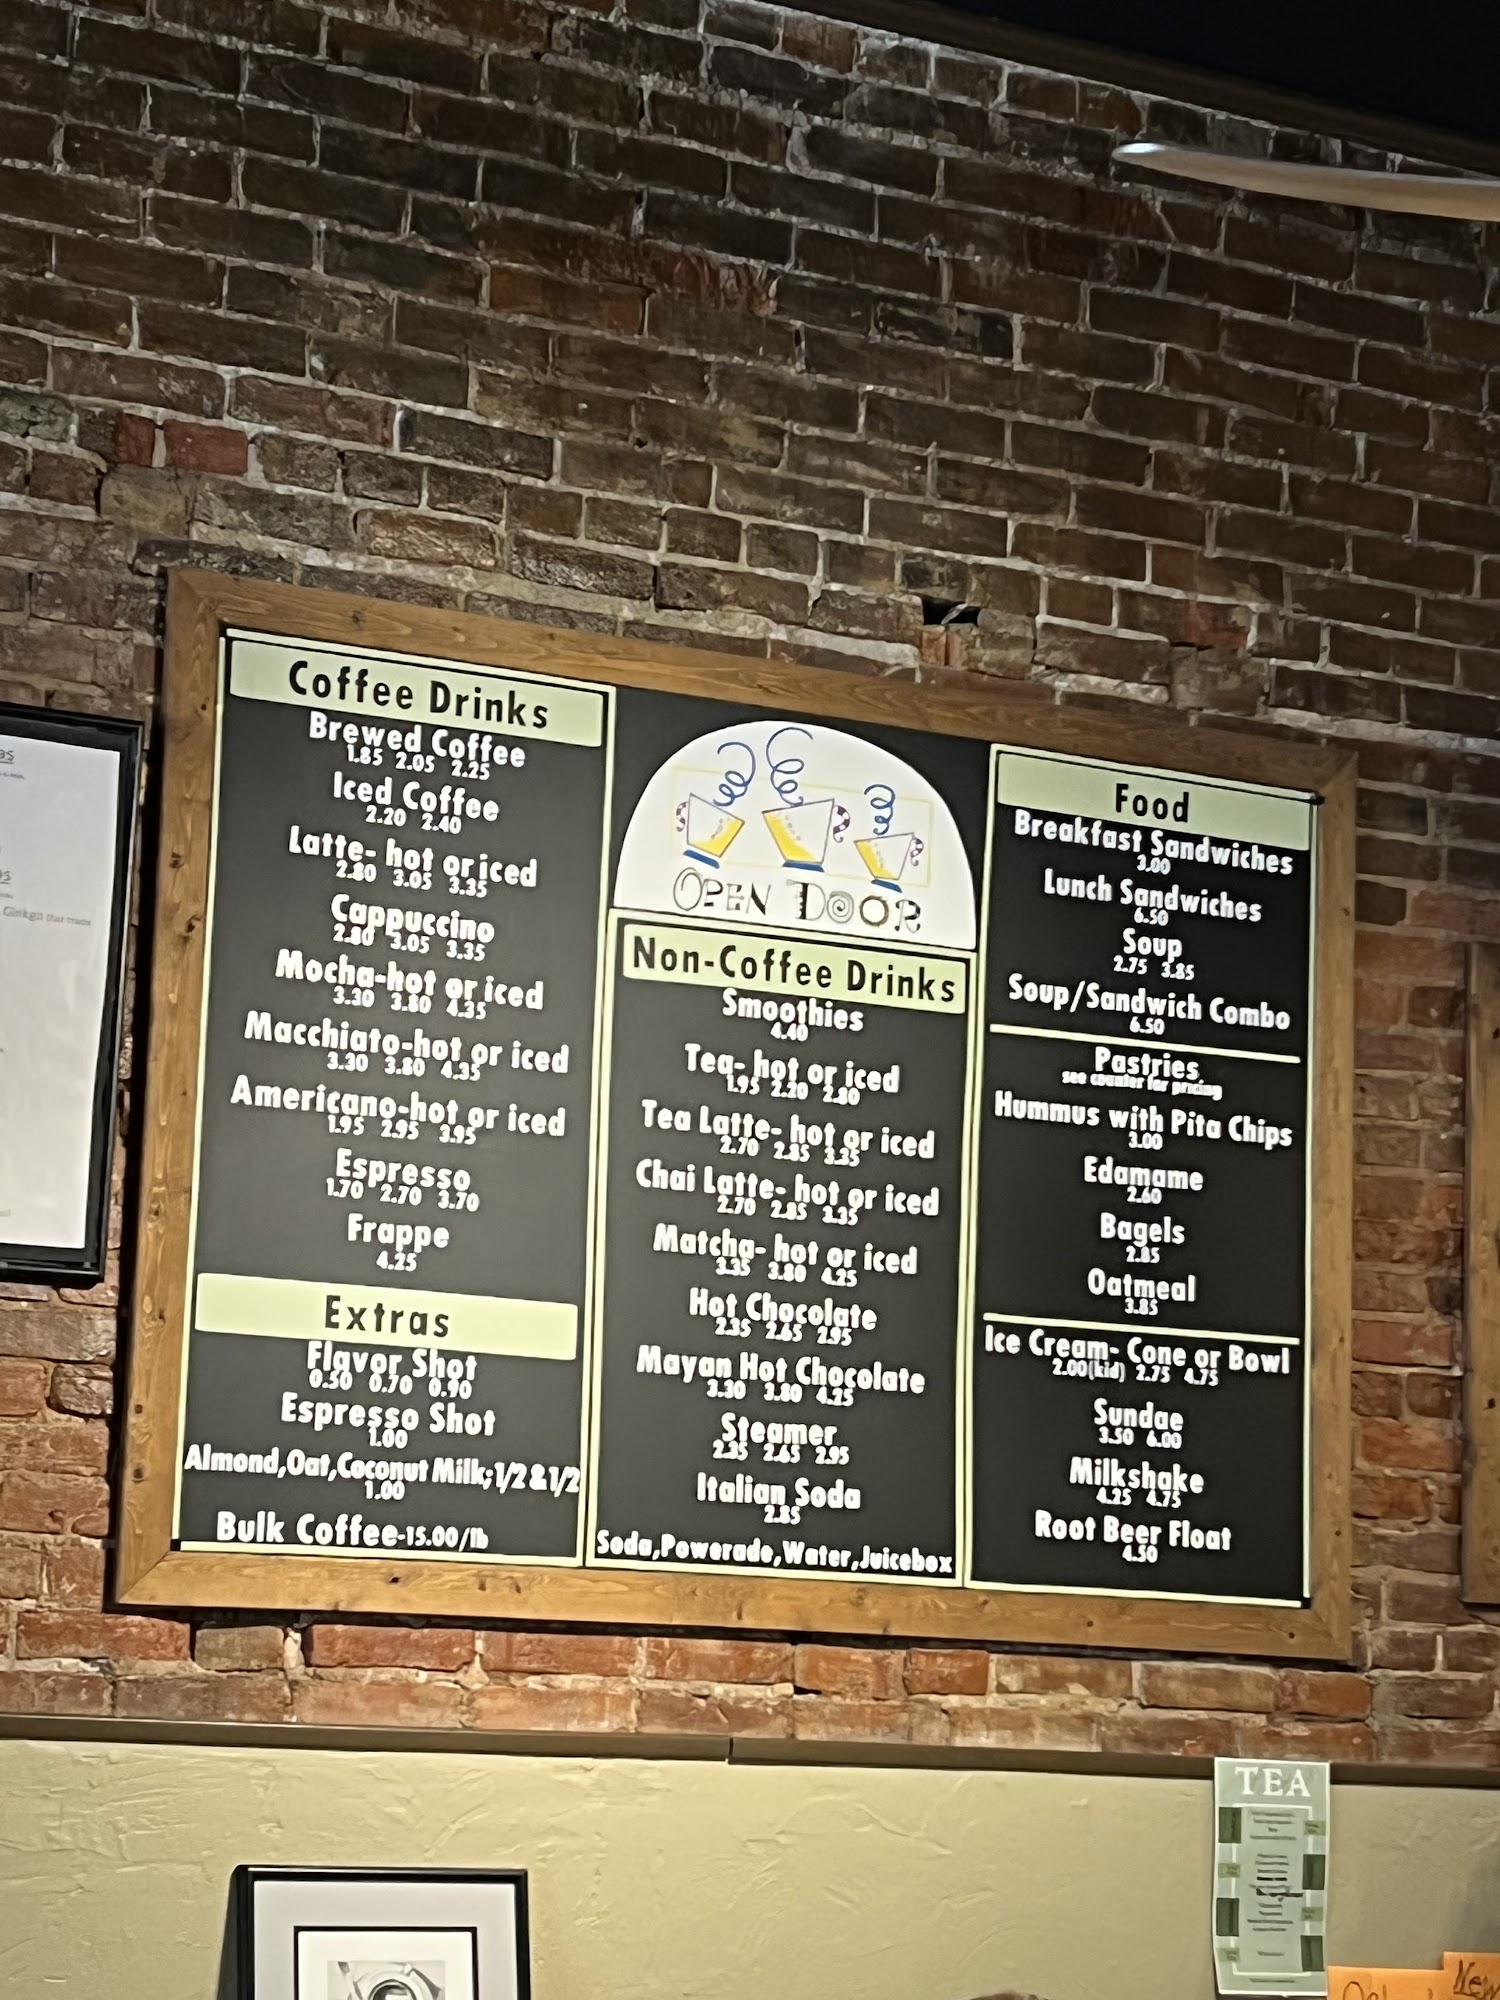 Coffee Drinks
Brewed Coffee
1.85 2.05 2.25
Iced Coffee
2.20 2.40
Latte- hot or iced
2.80 3.05 3.35
Cappuccino
2.80 3.05 3.35
Mocha-hot or iced
3.30 3.80 4.35
Macchiato-hot or iced
3.30 3.80 4.35
Americano-hot or iced
1.95 2.95 3.95
Espresso
1.70 2.70 3.70
Frappe
4.25
Extras
Flavor Shot
0.50 0.70 0.90
Espresso Shot
1.00
Almond,Oat,Coconut Milk;1/2&1/2
1.00
Bulk Coffee-15.00/lb
OPEN DOOR
Non-Coffee Drinks
Smoothies
4.40
Tea- hot or iced
1.95 2.20 2.80
Tea Latte- hot or iced
2.70 2.85 3.35
Chai Latte- hot or iced
2.70 2.85 3.35
Matcha- hot or iced
3.35 3.80 4.25
Hot Chocolate
2.35 2.65 2.95
Mayan Hot Chocolate
3.30 3.80 4.25
Steamer
2.35 2.65 2.95
Italian Soda
2.85
Soda,Powerade,Water,Juicebox
Food
Breakfast Sandwiches
3.00
Lunch Sandwiches
6.50
Soup
2.75 3.85
Soup/Sandwich Combo
6.50
Pastries
see counter for pricing
Hummus with Pita Chips
3.00
Edamame
2.60
Bagels
2.85
Oatmeal
3.85
Ice Cream- Cone or Bowl
2.00(kid) 2.75 4.75
Sundae
3.50 6.00
Milkshake
4.25 4.75
Root Beer Float
4.50
Ginkgo that made
TEA
New